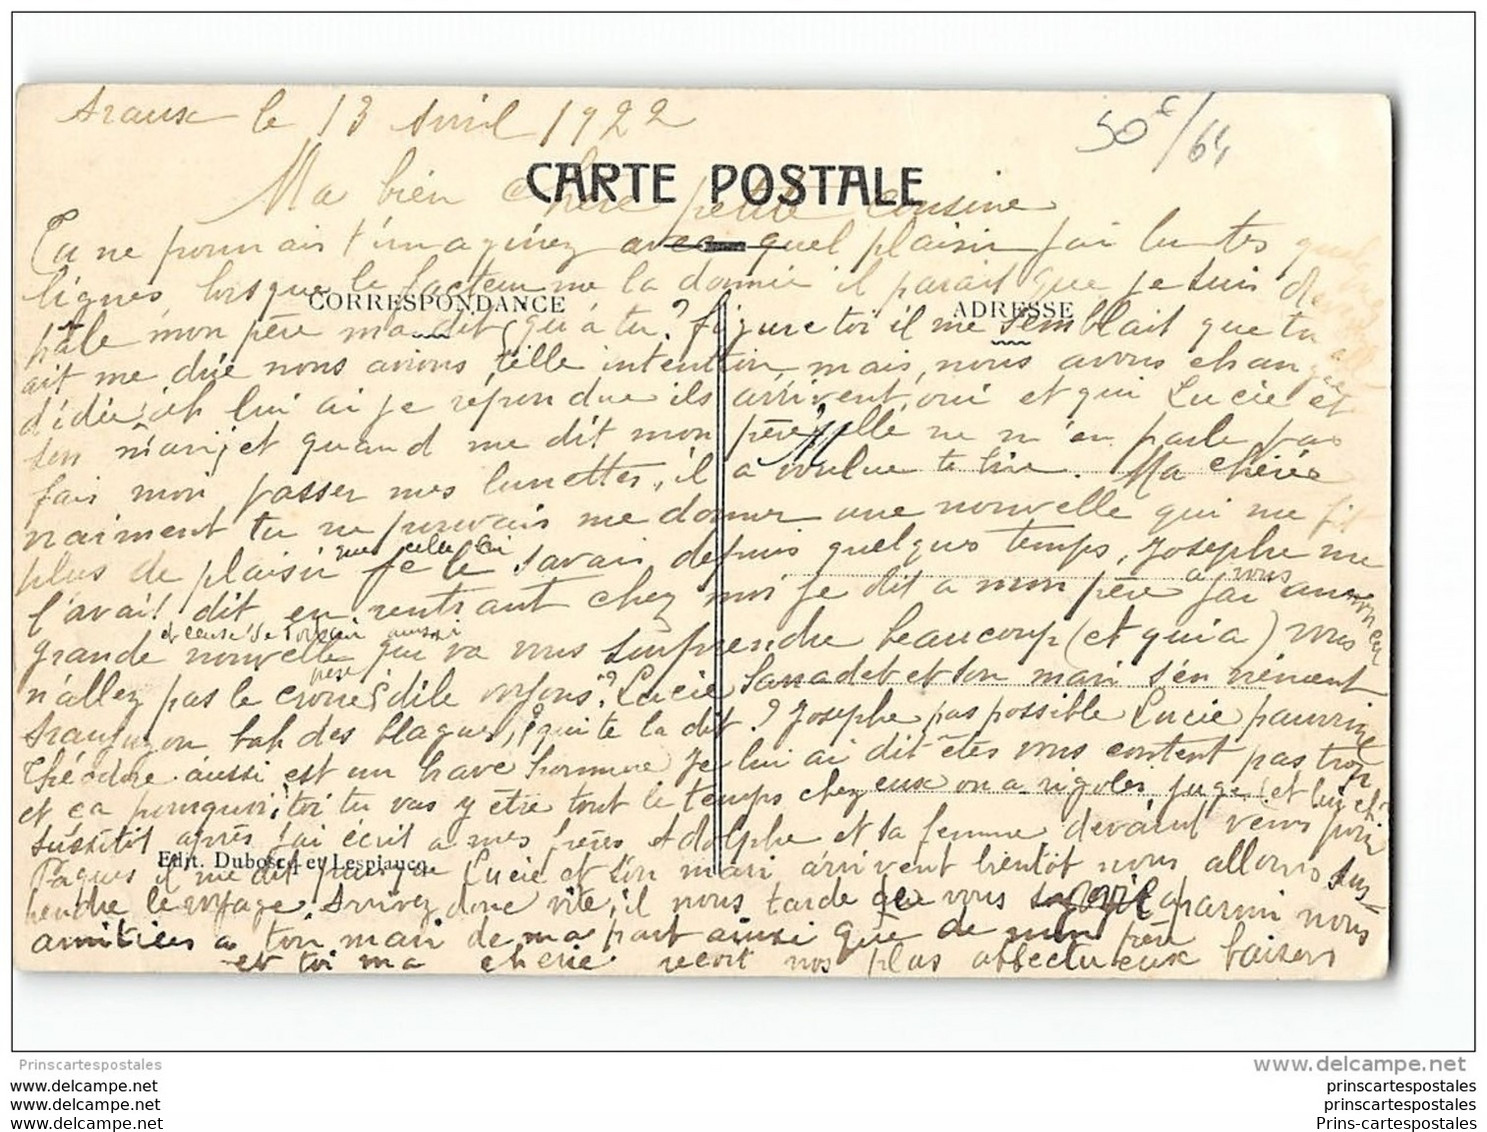 Araux le 13 Avril 1922
50 € / 64
CARTE POSTALE
Ma bien chère petite cousine
Tu ne pourrais t'imaginez avec quel plaisir j'ai lu tes
lignes, lorsque le facteur me la donnée il parait que je suis devenue
pâle mon père ma dit, qu'a tu? figure toi il me semblait que tu
ait me dire nous avions telle intention, mais, nous avons changé
d'idée, ah lui ai je répondue ils arrivent, oui et qui Lucie et
son mari, et quand me dit mon père, elle ne m'en parle pas
fais moi passer mes lunettes, il a voulue te lire. Ma chérie
vraiment tu ne pouvais me donner une nouvelle qui me fit
plus de plaisir que celle ci je le savais depuis quelques temps, Josephe me
l'avait dit en rentrant chez moi je dit a mon père j'ai a vous annoncer
grande nouvelle qui va vous surprendre beaucoup (et qui a) vous
n'allez pas le croire père dile voyons? Lucie Sarradet et son mari s'en viennent
Araujuzon bah des blagues, qui te la dit? Josephe pas possible Lucie
Théodore aussi est un brave homme je lui ai dit êtes vous content pas trop
et ça pourquoi, toi tu vas y être tout le temps chez eux on a rigoler, juge, et lui
sussitôt après j'ai écrit a mes frères Adolphe et sa femme devant venir pour
Pâques il me dit Lucie et son mari arrivent bientôt nous allons sus-
pendre le voyage. Arrivez donc vite, il nous tarde de vous parmi nous
amitiées a ton mari de ma part ainsi que de mon père
et toi ma chérie recoit nos plus affectueux baisers
CORRESPONDANCE
ADRESSE
Edit. Duboscq et Lesplaucq
Prinscartespostales
www.delcampe.net
www.delcampe.net
www.delcampe.net
www.delcampe.net
prinscartespostales
prinscartespostales
Prins-cartespostales